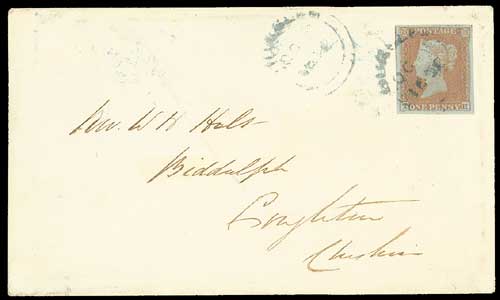 POSTAGE
ONE PENNY
Rev. W H Holt
Biddulph
Congleton
Cheshire